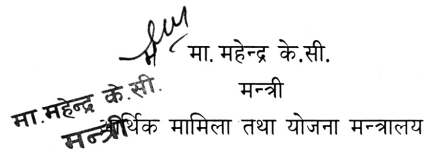 मा. महेन्द्र के.सी.
मन्त्री
आर्थिक मामिला तथा योजना मन्त्रालय
मा. महेन्द्र के. सी.
मन्त्री